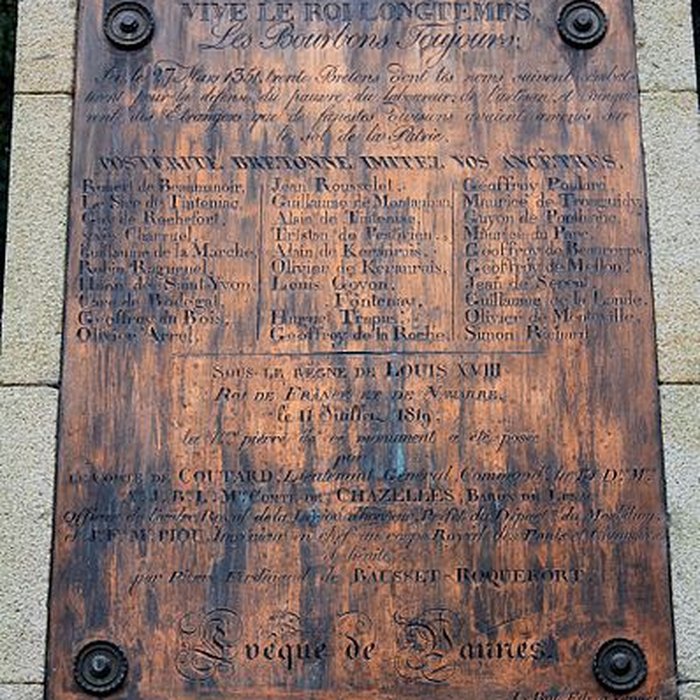 VIVE LE ROI LONGTEMPS,
Les Bourbons Toujours;
Ici le 27 Mars 1351, trente Bretons dont les noms suivent combat-
tirent pour la défense du pauvre, du laboureur, de l'artisan, et vainqui-
rent des Étrangers que de funestes divisions avaient amenés sur
le sol de la Patrie.
POSTÉRITÉ BRETONNE IMITEZ VOS ANCÊTRES.
Robert de Beaumanoir,
Le Sire de Tinteniac,
Guy de Rochefort,
Yves Charruel,
Guillaume de la Marche,
Robin Raguenel,
Huon de Saint Yvon,
Caro de Bodegat,
Geoffroy du Bois,
Olivier Arrel,
Jean Rousselet,
Guillaume de Montauban,
Alain de Tinteniac,
Tristan de Pestivien,
Alain de Keranrais,
Olivier de Keranrais,
Louis Goyon,
Fontenay,
Huguet Trapus,
Geoffroy de la Roche,
Geoffroy Poulard,
Maurice de Tronguidy,
Guyon de Pontblanc,
Maurice du Parc,
Geoffroy de Beaucorps,
Geoffroy de Mellon,
Jean de Serent,
Guillaume de la Lande,
Olivier de Monteville,
Simon Richard
SOUS LE RÈGNE DE LOUIS XVIII
ROI DE FRANCE ET DE NAVARRE,
le 11 Juillet 1819,
la 1ère pierre de ce monument a été posée
par
LE COMTE DE COUTARD, Lieutenant Général, Command.
A. J. B. L. Mis COMTE DE CHAZELLES, BARON DE
Officier de l'ordre Royal de la Légion d'honneur, Préfet du Départ. du Morbihan,
et J. F. M. PIOU, Ingénieur en chef au corps Royal des Ponts et Chaussées
et bénite
par Pierre Ferdinand de BAUSSET-ROQUEFORT
Evêque de Vannes.